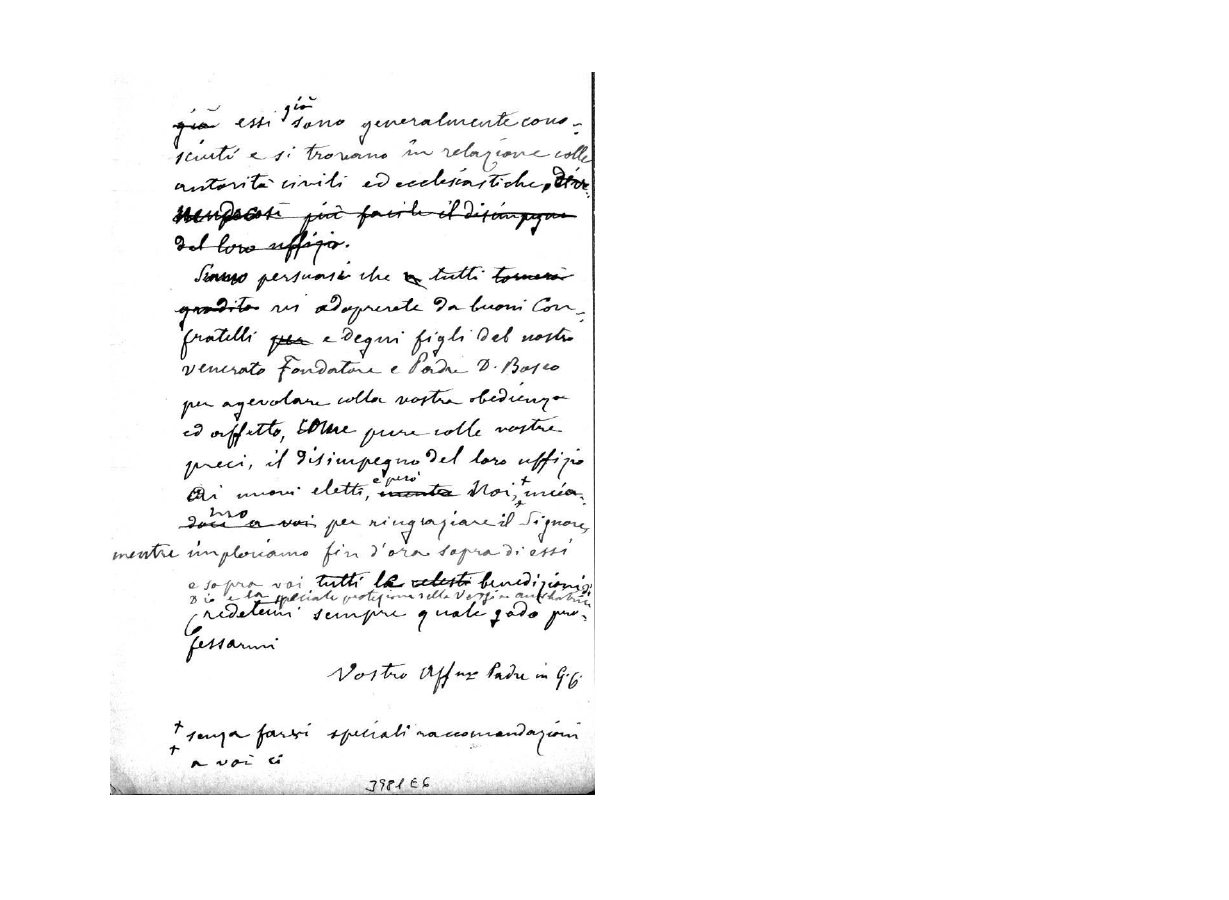 già
già essi sono generalmente cono-
sciuti e si trovano in relazione colle
autorità civili ed ecclesiastiche, dive-
nendo così più facile il disimpegno
del loro uffizio.
Siamo persuasi che a tutti tornerà
gradito vi adoprerete da buoni Con-
fratelli per e degni figli del nostro
venerato Fondatore e Padre D. Bosco
per agevolare colla vostra obedienza
ed affetto, come pure colle vostre
preci, il disimpegno del loro uffizio
e però
ai nuovi eletti, mentre Noi, + unia-
mo
doci a voi + per ringraziare il Signore,
mentre imploriamo fin d'ora sopra di essi
e sopra voi tutti le celesti benedizioni di
Dio e la speciale protezione della Vergine Ausiliatrice
Credetemi sempre quale godo pro-
fessarmi
Vostro Affmo Padre in G. C.
+ senza farvi speciali raccomandazioni
+ a voi ci
3981 E 6